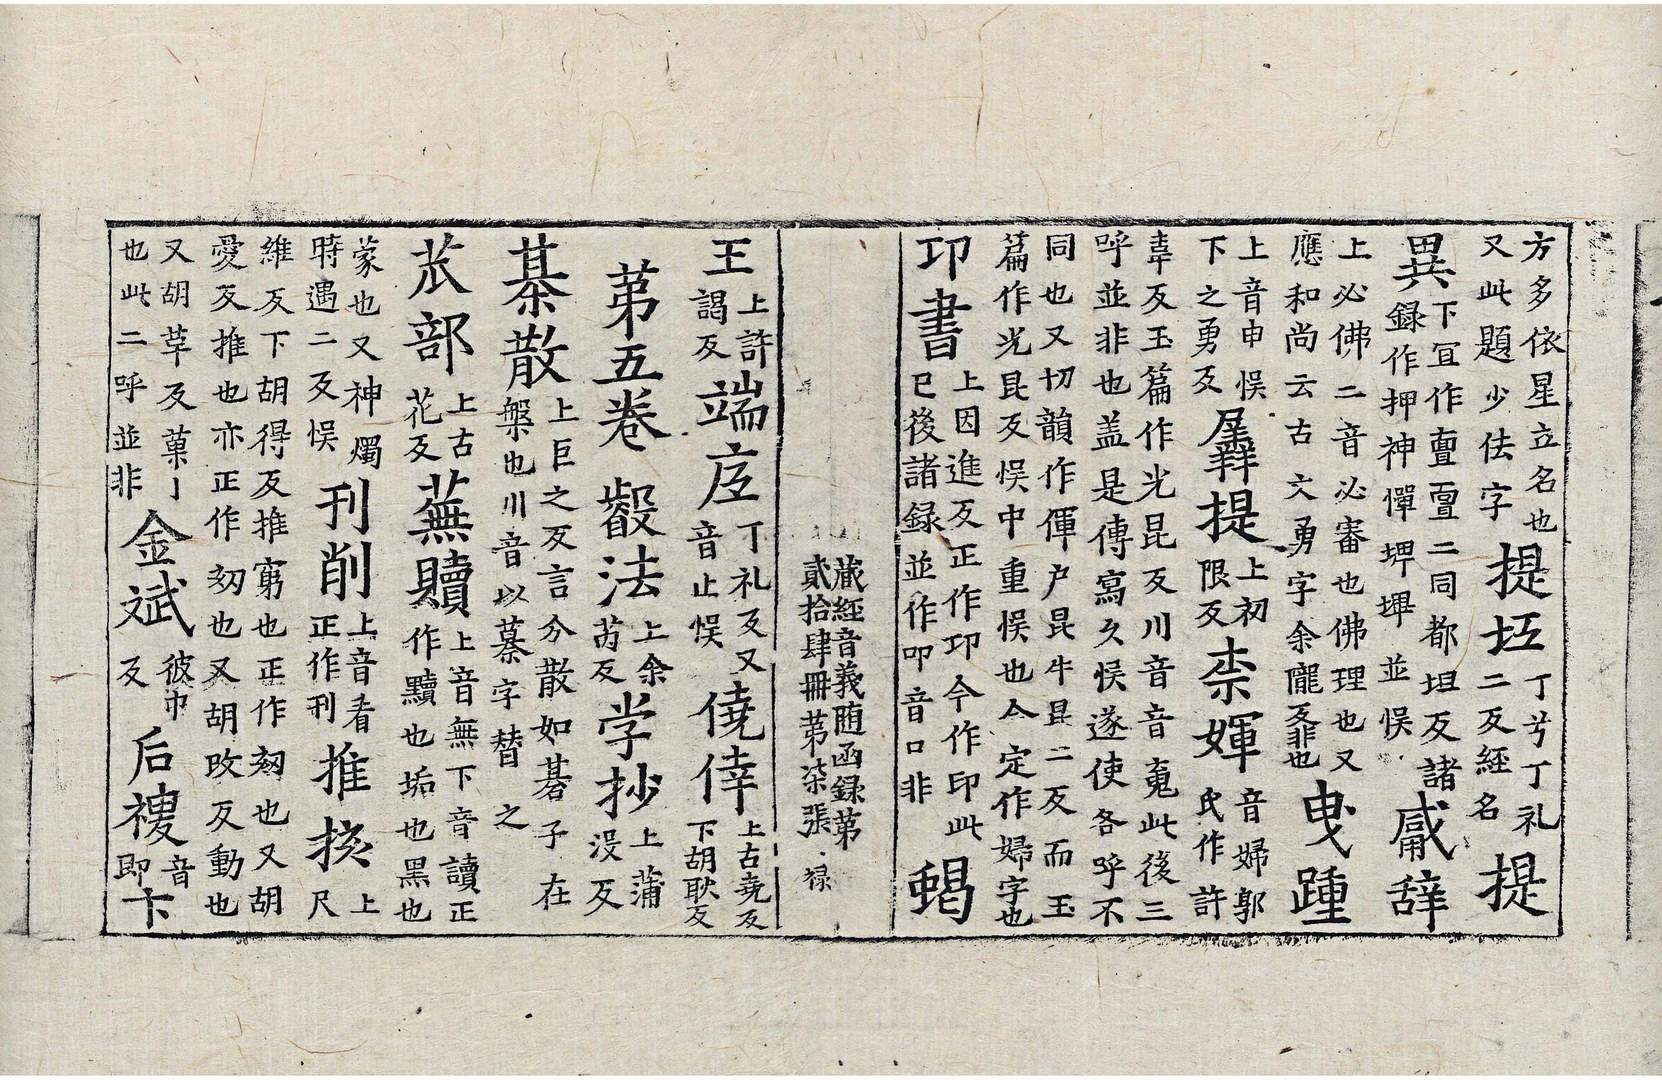 方多依星立名也又此題少佉字提坘丁兮丁礼二反經名提
異下冝作亶亶二同都坦反諸録作押神僤墠並悮辞
上必佛二音必審也佛理也又應和尚云古文勇字余隴反非也曳踵
上音申悮下之勇反羼提上初限反柰媈音婦郭氏作許
韋反玉篇作光昆反川音音䰟此後三呼並非也盖是傳寫久悮遂使各呼不
同也又切韻作㑮户昆牛昆二反而玉篇作光昆反悮中重悮也今定作婦字也
印書上因進反正作印今作印此已後諸録並作叩音口非蝎
藏經音義随函録第
貳拾肆冊第柒張 禄
王上許謁反端底丁礼反又音止悮僥倖上古堯反下胡耿反
第五卷 叡法上余芮反学抄上蒲没反
棊散上巨之反言分散如碁子在槃也川音以綦字替之
苽部上古花反蕪贖上音無下音讀正作黷也垢也黑也
蒙也又神燭時遇二反悮刊削上音看正作刊推核上尺
維反下胡得反推窮也正作劾也又胡愛反推也亦正作劾也又胡改反動也
又胡革反菓丨也此二呼並非金斌彼巾反后稷音即卞